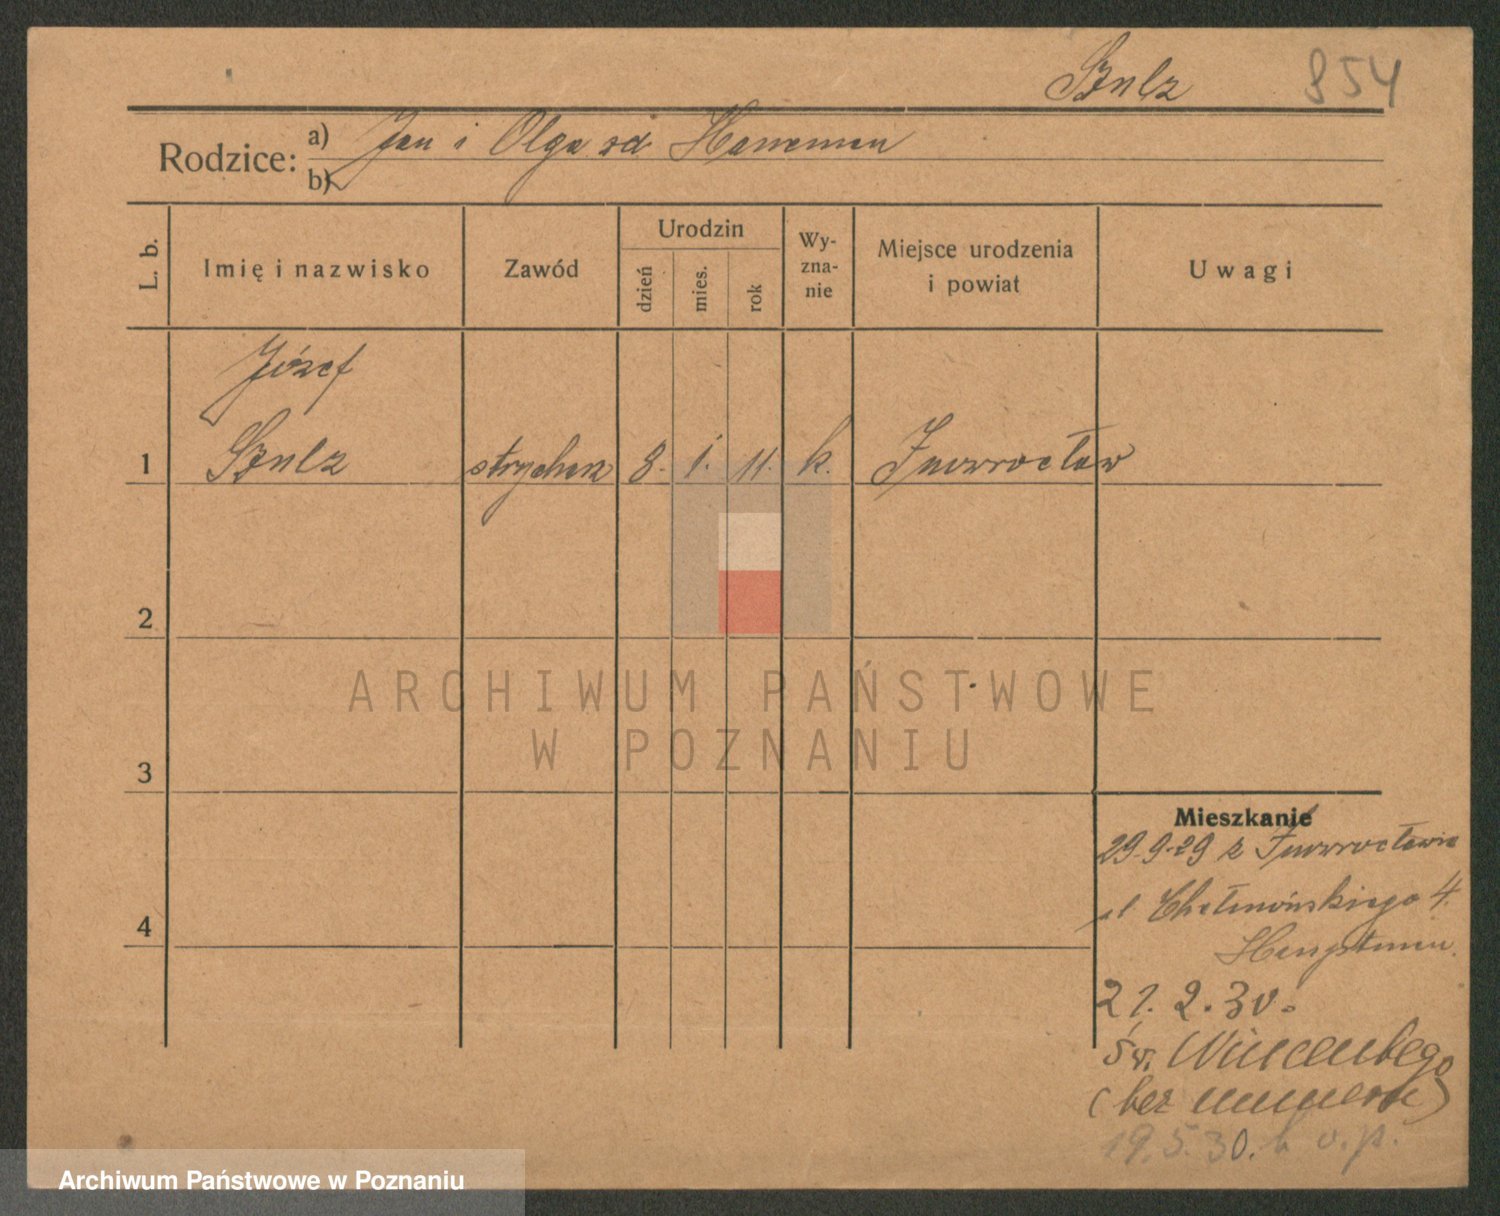 Szulz 854
Rodzice: a) Jan i Olga zd Hanneman
b)
L. b. Imię i nazwisko Zawód Urodzin dzień mies. rok Wyzna-nie Miejsce urodzenia i powiat Uwagi
Józef
1 Szulz 8. 1. 11. k. Inowrocław
2
3
4
Mieszkanie
29.9.29 z Inowrocławia
ul Chełmońskiego 4.
21.2.30.
św. Wincentego
(bez numeru)
19.5.30.
ARCHIWUM PAŃSTWOWE
W POZNANIU
Archiwum Państwowe w Poznaniu